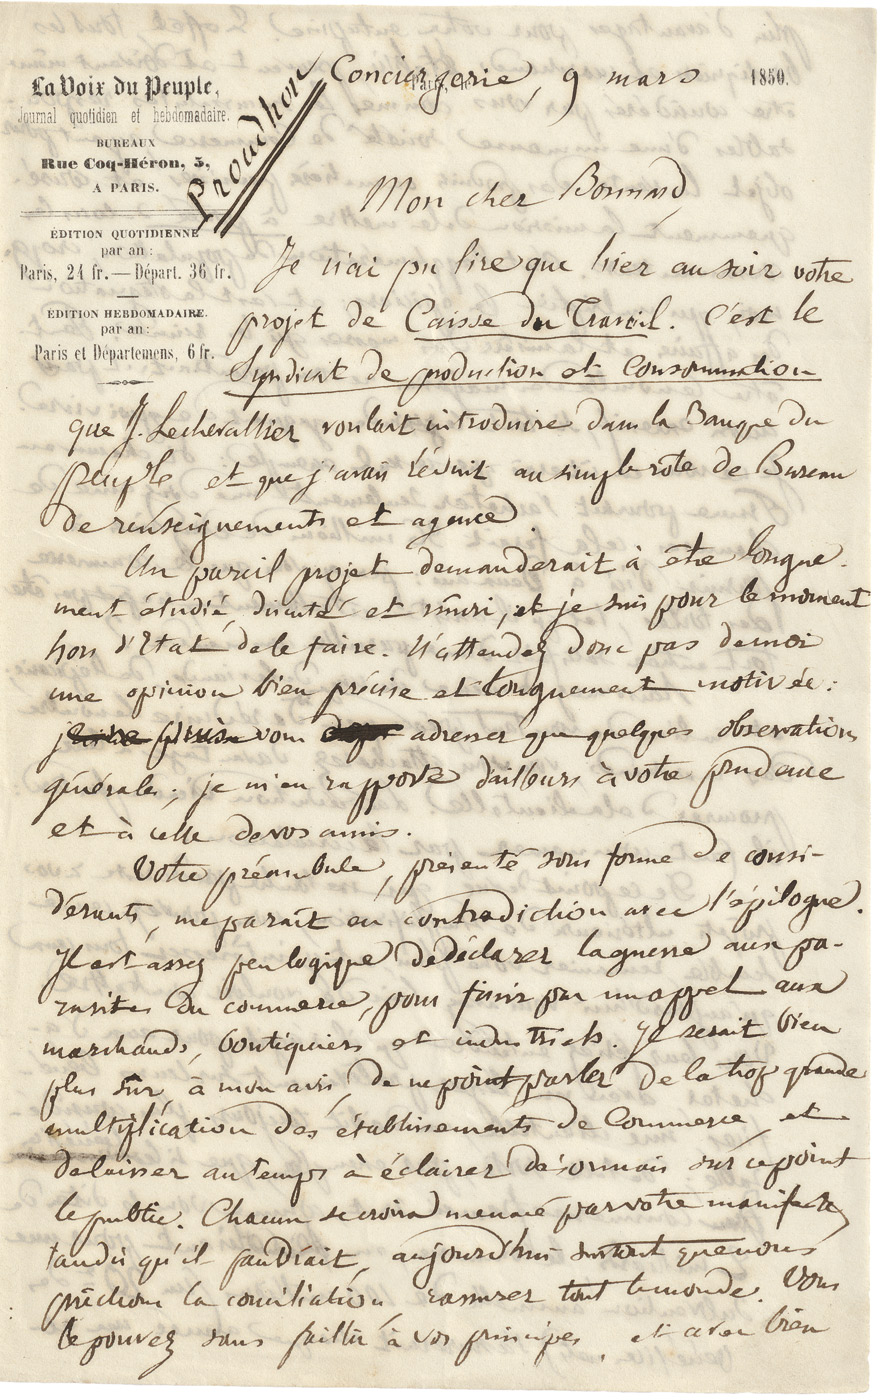 La Voix du Peuple,
Journal quotidien et hebdomadaire.
BUREAUX
Rue Coq-Héron, 5,
A PARIS.
ÉDITION QUOTIDIENNE
par an :
Paris, 24 fr. — Départ. 36 fr.
ÉDITION HEBDOMADAIRE.
par an :
Paris et Départemens, 6 fr.
Proudhon
Conciergerie, 9 mars 1850.
Mon cher Bonnard,
Je n'ai pu lire que hier au soir votre
projet de Caisse du Travail. C'est le
Syndicat de production et Consommation
que J. Lechevallier voulait introduire dans la Banque du
Peuple et que j'avais réduit au simple rôle de Bureau
de renseignements et agence.
Un pareil projet demanderait à être longue-
ment étudié, discuté et mûri, et je suis pour le moment
hors d'état de le faire. N'attendez donc pas de moi
une opinion bien précise et longuement motivée :
je vous adresser que quelques observations
générales ; je m'en rapporte d'ailleurs à votre prudence
et à celle de vos amis.
Votre préambule, présenté sous forme de consi-
dérants, me paraît en contradiction avec l'épilogue.
Il est assez peu logique de déclarer la guerre aux pa-
rasites du commerce, pour finir par un appel aux
marchands, boutiquiers et industriels. Il serait bien
plus sûr, à mon avis, de ne point parler de la trop grande
multiplication des établissements de Commerce, et
de laisser au temps à éclairer désormais sur ce point
le public. Chacun se croira menacé par votre manifeste,
tandis qu'il faudrait, aujourd'hui surtout que nous
prêchons la conciliation, rassurer tout le monde. Vous
le pouvez sans faillir à vos principes, et avec bien